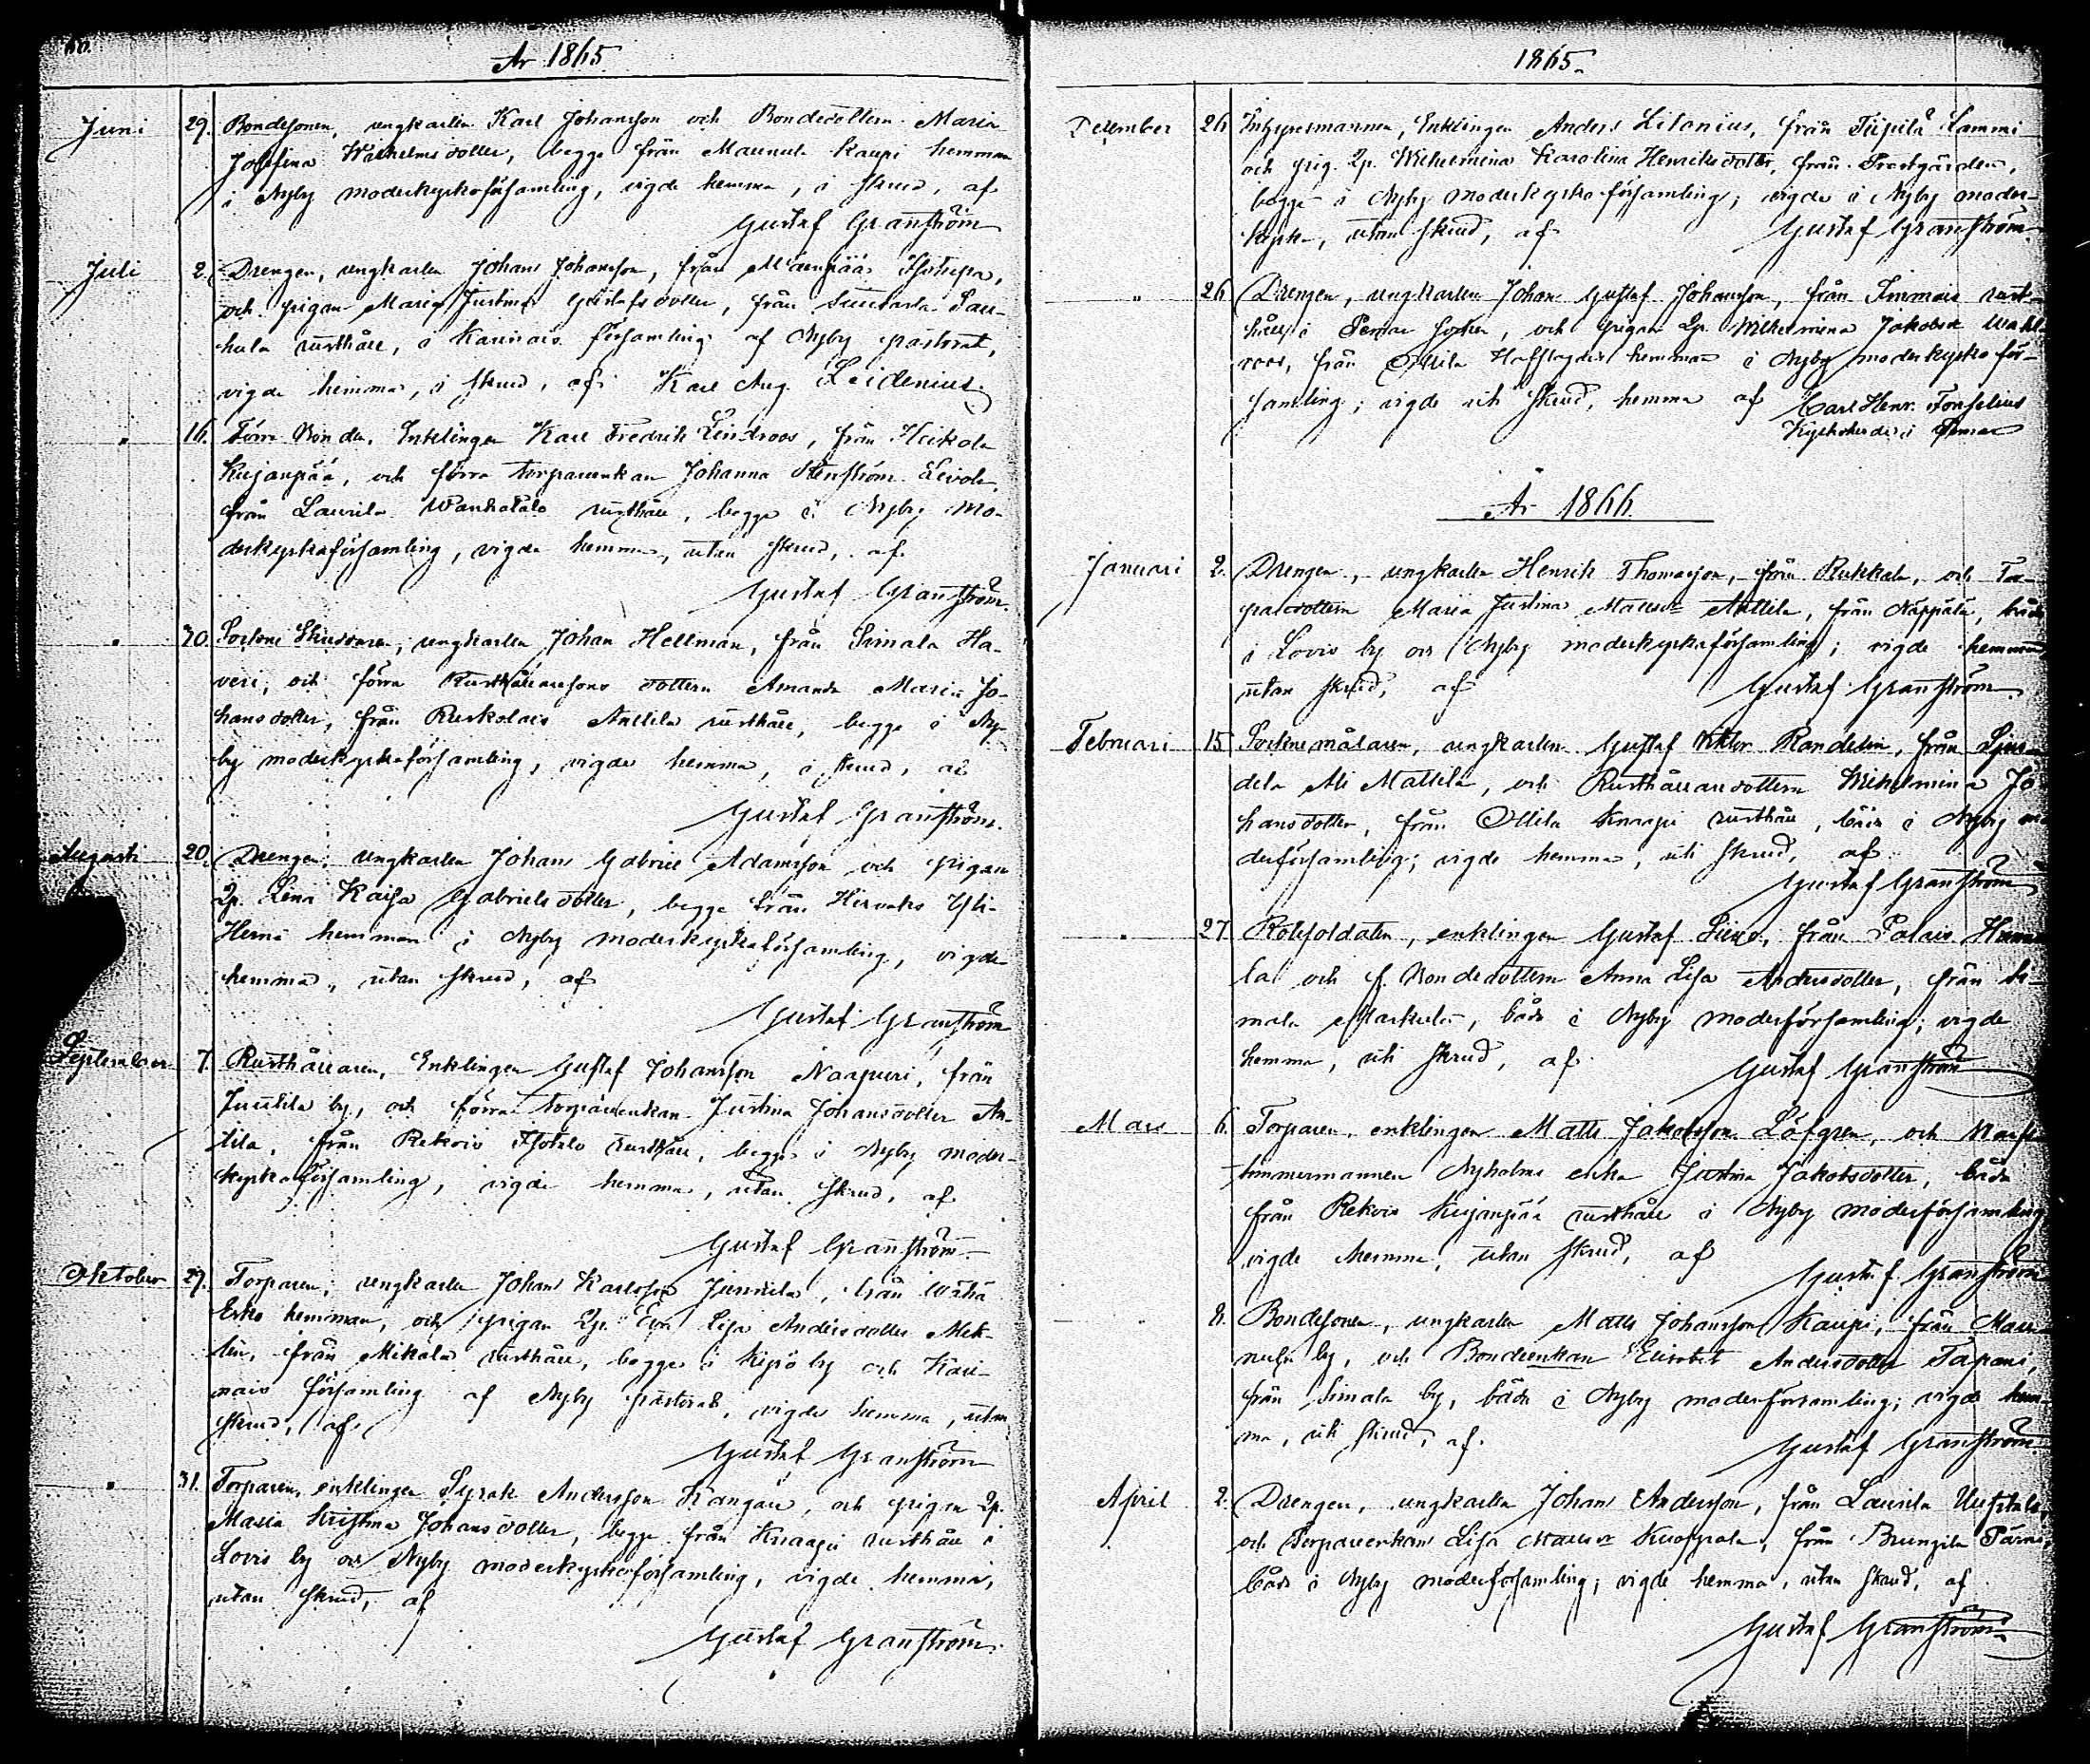 År 1865
Juni 29. Bondesonen, ungkarlen Karl Johansson och Bondedottern Maria
Josefina Wilhelmsdotter, begge från Maunula Kaupi hemman
i Nyby moderkyrkoförsamling, vigde hemma, i skrud, af
Gustaf Granström
Juli 2. Drengen, ungkarlen Johan Johansson, från Isotupa,
och pigan Maria Justina Gustafsdotter, från Pau-
hula rusthåll, i Karinais församling af Nyby pastorat,
vigde hemma, i skrud, af Karl Aug. Leidenius.
" 16. Förra Bonden, Enklingen Karl Fredrik Lindroos, från Heikola
Kujanpää, och förra torpareenkan Johanna Stenström Leivola,
från Laurila Wanhatalo rusthåll, begge i Nyby mo-
derkyrkoförsamling, vigde hemma, utan skrud, af
Gustaf Granström.
" 30. Sockne Skräddaren, ungkarlen Johan Hellman, från Simala Ha-
veri, och förra Rusthållaresons dottern Amanda Maria Jo-
hansdotter, från Ruskolais Anttila rusthåll, begge i Ny-
by moderkyrkoförsamling, vigde hemma, i skrud, af
Gustaf Granström.
Augusti 20. Drengen, ungkarlen Johan Gabriel Adamsson och pigan
2p. Lena Kaisa Gabrielsdotter, begge från Hirvaks Yli-
Hemmä hemman i Nyby moderkyrkoförsamling, vigde
hemma, utan skrud, af
Gustaf Granström
September 7. Rusthållaren, Enklingen Gustaf Johansson Naapuri, från
Juntila by, och förra torpareenkan Justina Johansdotter An-
tila, från Rekois Isotalo rusthåll, begge i Nyby moder-
kyrkoförsamling, vigde hemma, utan skrud, af
Gustaf Granström.
Oktober 29. Torparen, ungkarlen Johan Karlsson Junnila, från Wähä
Erko hemman, och pigan 2p. Eva Lisa Andersdotter Mek-
lin, från Mikola rusthåll, begge i Kyrö by och Kari-
nais församling af Nyby pastorat, vigde hemma, utan
skrud, af
Gustaf Granström
" 31. Torparen, enklingen Syrak Andersson Kangas, och pigan 2p.
Maria Kristina Johansdotter, begge från Knaapi rusthåll i
Lovis by och Nyby moderkyrkoförsamling, vigde hemma,
utan skrud, af
Gustaf Granström.
1865.
December 26 Inhysesmannen, Enklingen Anders Litonius, från Tiipilä Lammi
och pig. 2p. Wilhelmina Karolina Henriksdotter, från Prestgården,
begge i Nyby moderkyrkoförsamling; vigde i Nyby moder-
kyrka, utan skrud, af Gustaf Granström.
" 26 Drengen, ungkarlen Johan Gustaf Johansson, från rust-
håll i Pemar socken, och pigan 2p. Wilhelmina Jakobsd. Wahl-
roos, från Ollila Hofslagars hemman i Nyby moderkyrkoför-
samling; vigde uti skrud, hemma af Carl Henr. Fonselius
Kyrkoherde i Pemar
År 1866
Januari 2. Drengen, ungkarlen Henrik Thomasson, från Rukkala, och Tor-
paredottern Maria Justina Mattsdr Anttila, från Näppälä, båda
i Lovis by och Nyby moderkyrkoförsamling; vigde hemma
utan skrud, af Gustaf Granström.
Februari 15 Socknemålaren, ungkarlen Gustaf Viktor Randelin, från
Ali Mattila, och Rusthållaredottern Wilhelmina Jo-
hansdotter, från Ollila Knaapi rusthåll, båda i Nyby mo-
derförsamling; vigde hemma, uti skrud, af
Gustaf Granström
" 27. Rotesoldaten, enklingen Gustaf från Palais
la och f. Bondedottern Anna Lisa Andersdotter, från Si-
mala Markula, båda i Nyby moderförsamling; vigde
hemma, uti skrud, af Gustaf Granström
Mars 6. Torparen, enklingen Matts Jakobsson Löfgren, och
timmermannen Nyholms enka Justina Jakobsdotter, båda
från Rekois Kujanpää rusthåll i Nyby moderförsamling
vigde hemma, utan skrud, af
Gustaf Granström
" 8. Bondesonen, ungkarlen Matts Johansson Kaupi, från Mau-
nula by, och Bondeenkan Elisabet Andersdotter Tapani,
från Simala by, båda i Nyby moderförsamling; vigde hem-
ma, uti skrud, af Gustaf Granström.
April 2. Drengen, ungkarlen Johan Andersson, från Laurila Uusitalo,
och Torpareenkan Lisa Mattsdr Kuoppala, från Brungila
båda i Nyby moderförsamling; vigde hemma, utan skrud, af
Gustaf Granström.